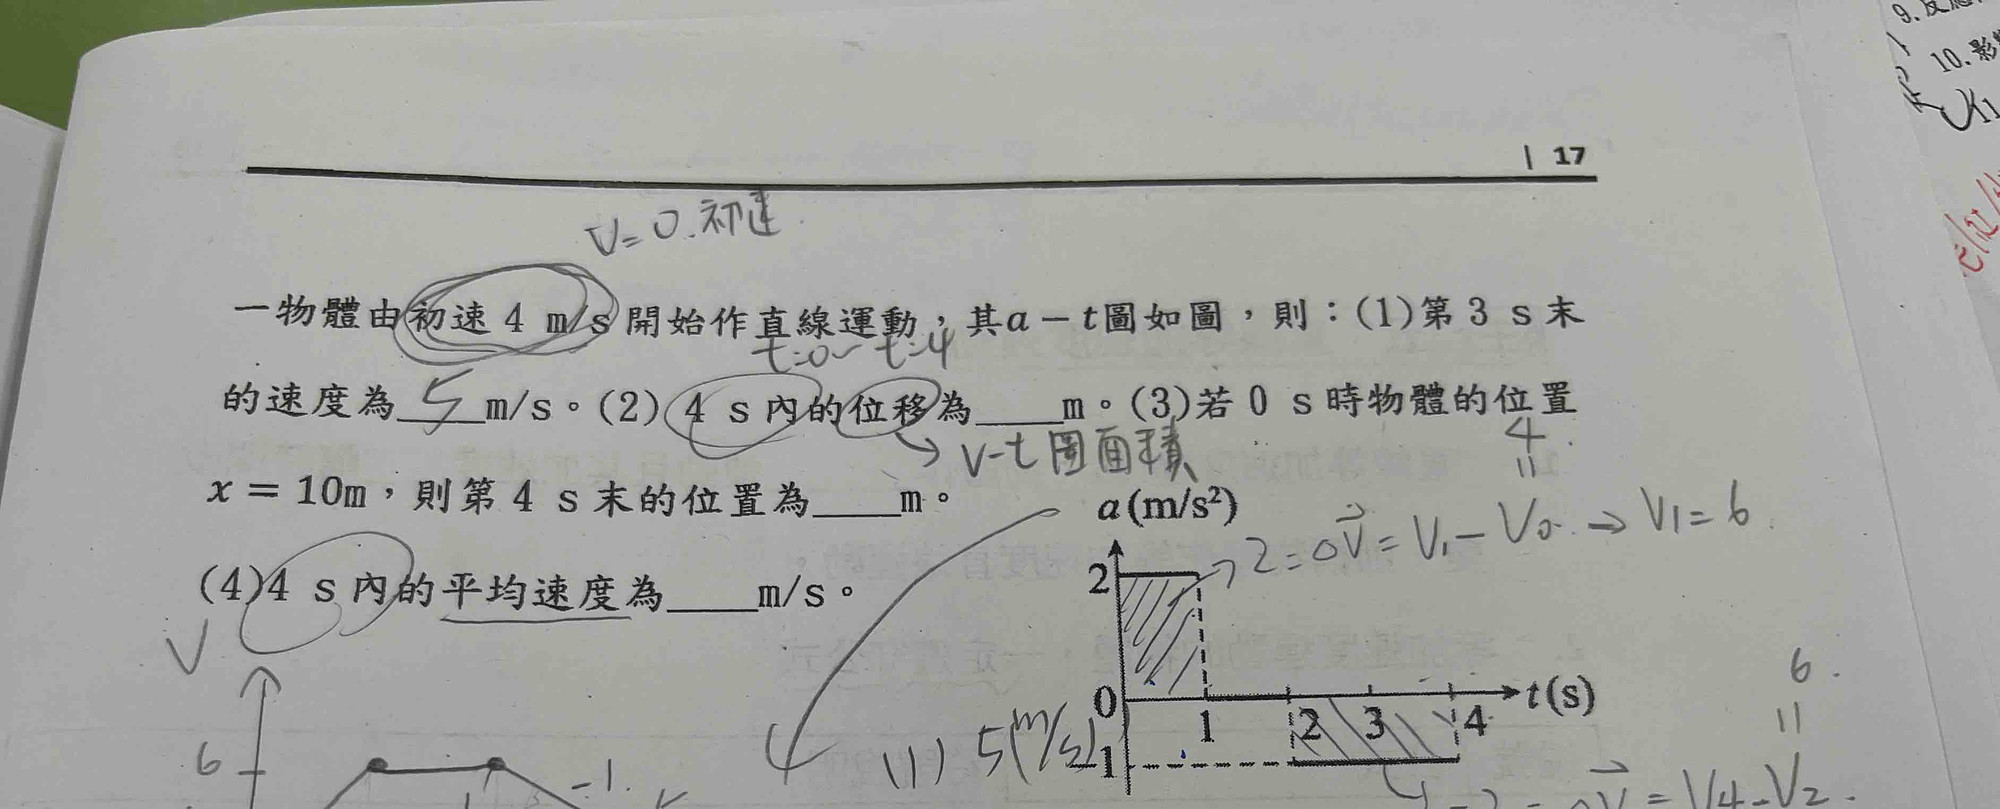 9.反應
10.影
17
V=0.初速
一物體由初速 4 m/s 開始作直線運動,其a-t圖如圖,則:(1)第 3 s 末
t=0~t=4
的速度為 5 m/s。(2) 4 s 內的位移為____m。(3)若 0 s 時物體的位置
→ V-t 圖面積
4
=
x = 10m,則第 4 s 末的位置為____m。
a(m/s²)
2=△V=V₁-V₀.→V₁=6.
(4)4 s 內的平均速度為____m/s。
2
V
0
1
2
3
4
t(s)
6.
=
(1) 5(m/s)
-1
6
-1.
-2=△V=V4-V2.